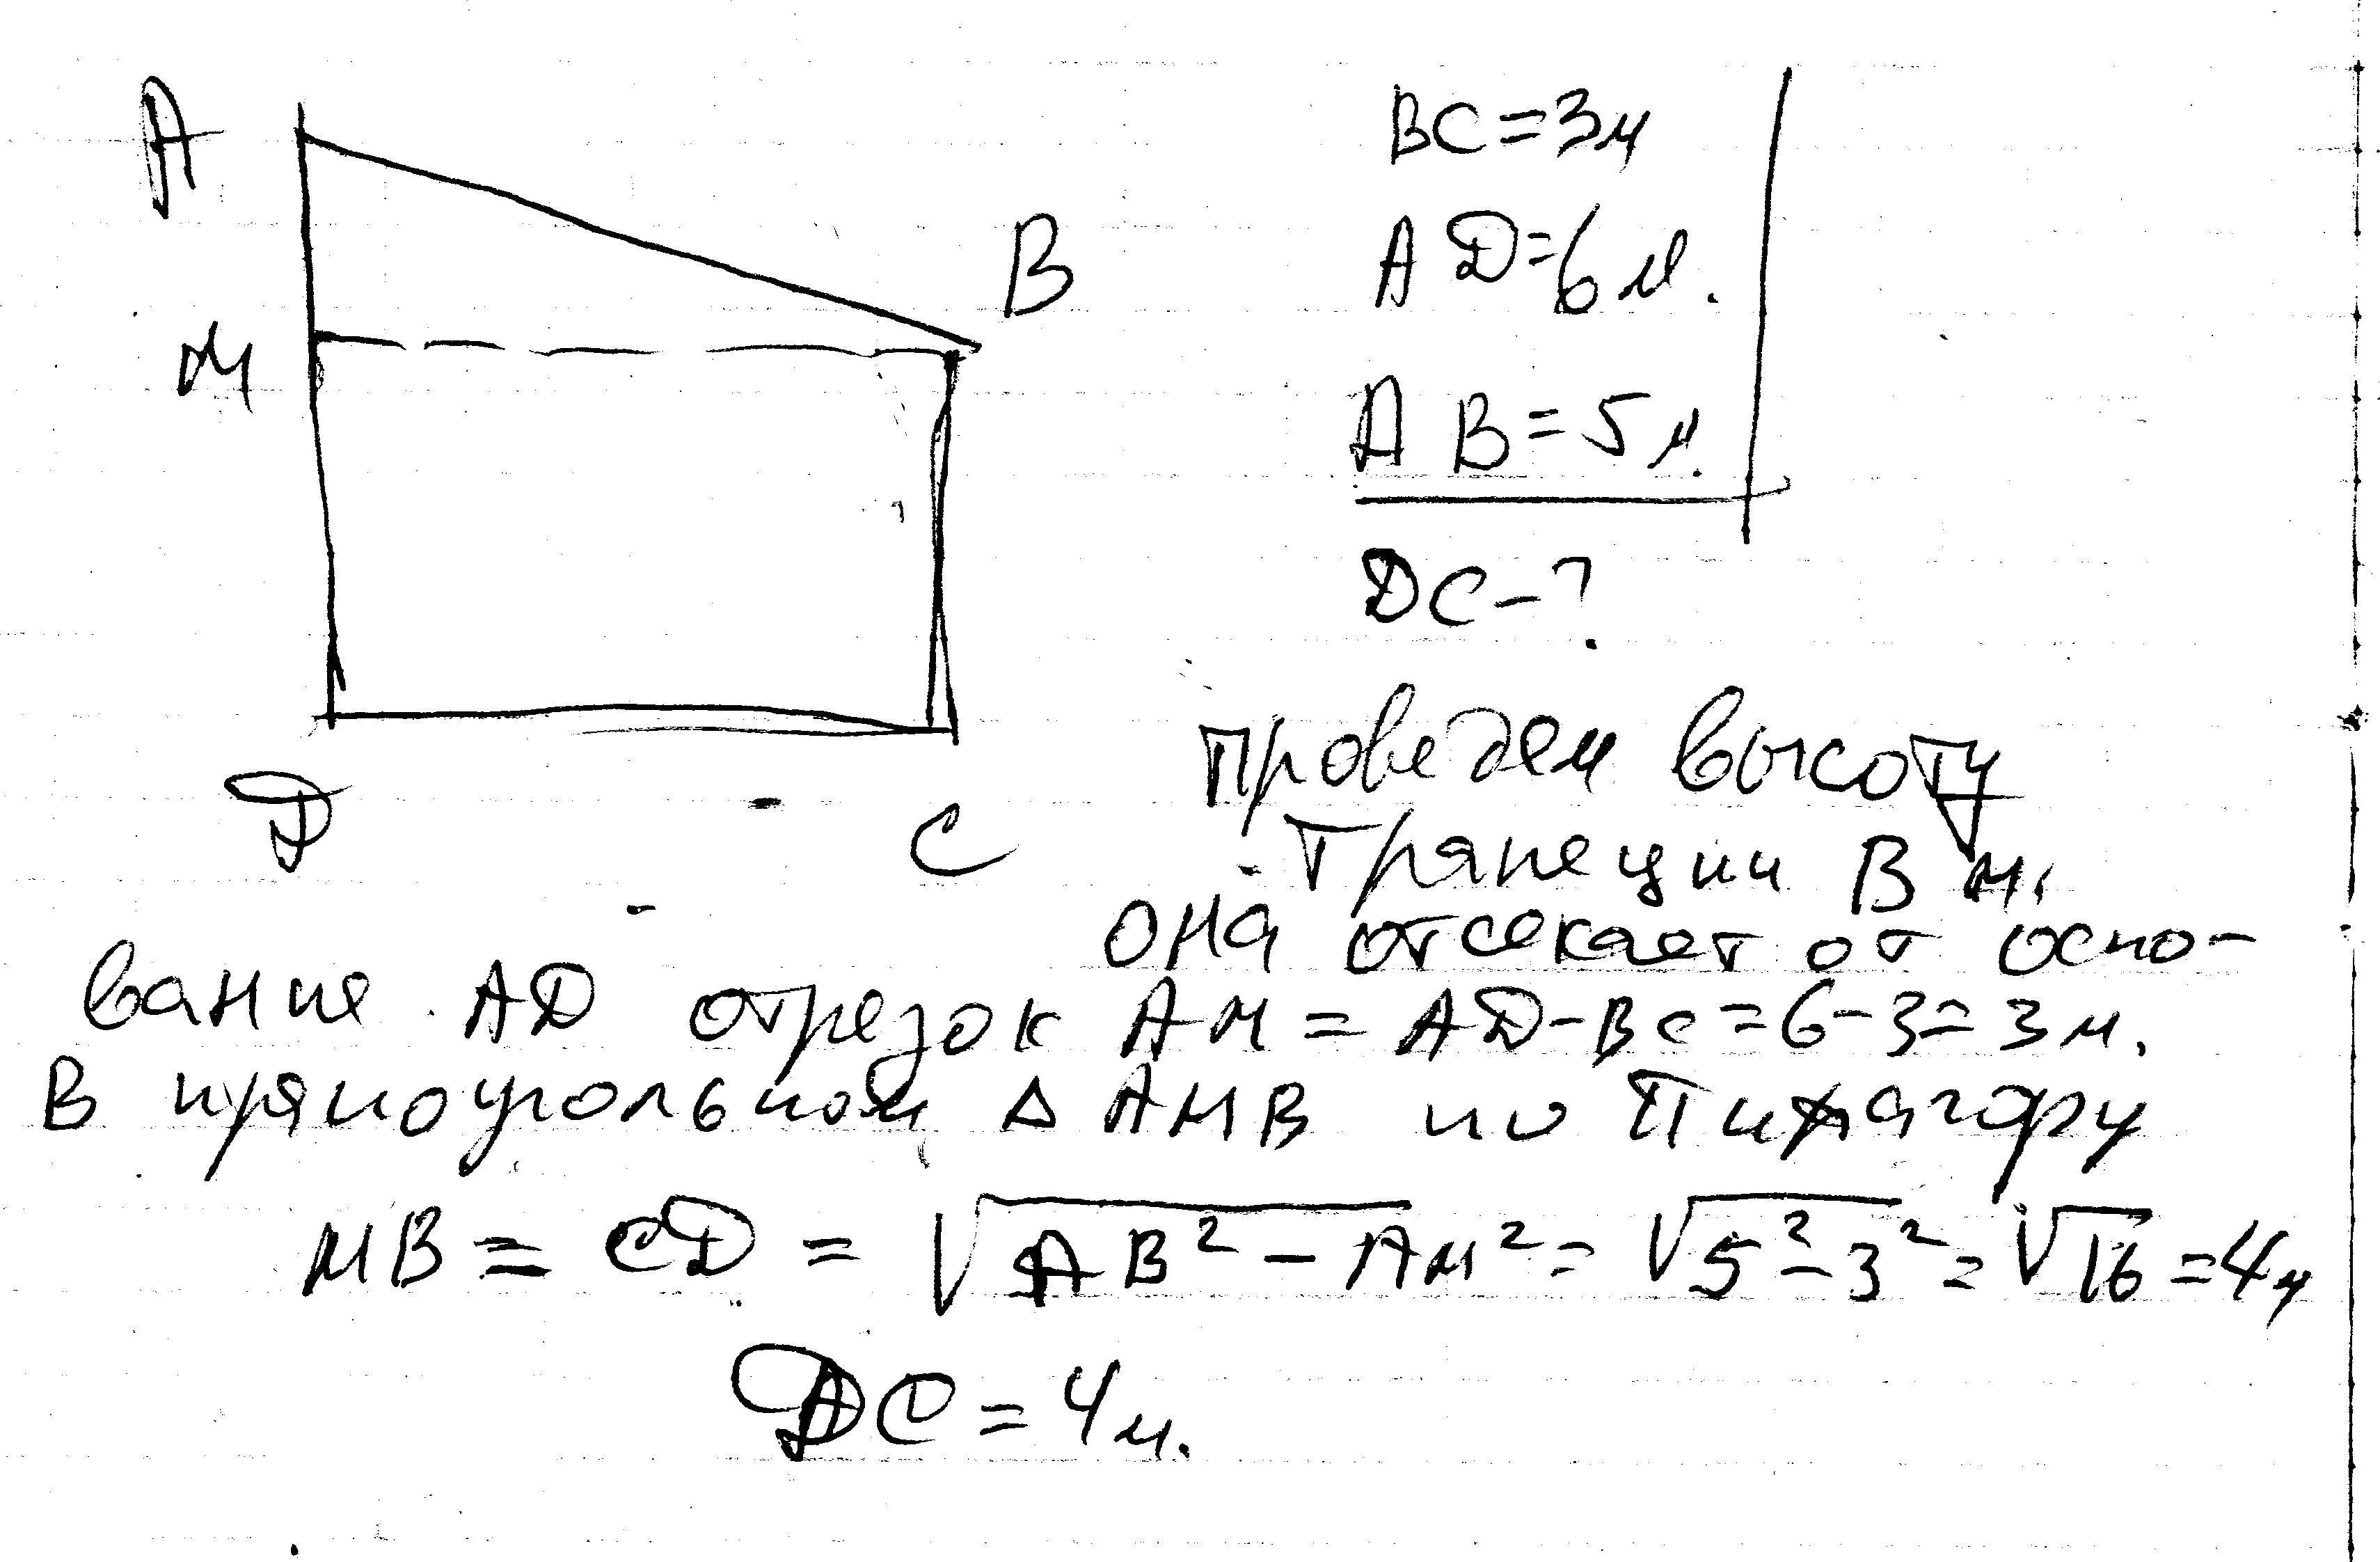 А
В
М
D
С
ВС=3м
АD=6м.
АВ=5м.
DC-?
проведем высоту
трапеции ВМ.
она отсекает от осно-
вание AD отрезок AM = AD-BC=6-3=3м.
В прямоугольном Δ AMB по Пифагору
MB = CD = √AB²-AM² = √5²-3² = √16 = 4м
DC = 4м.